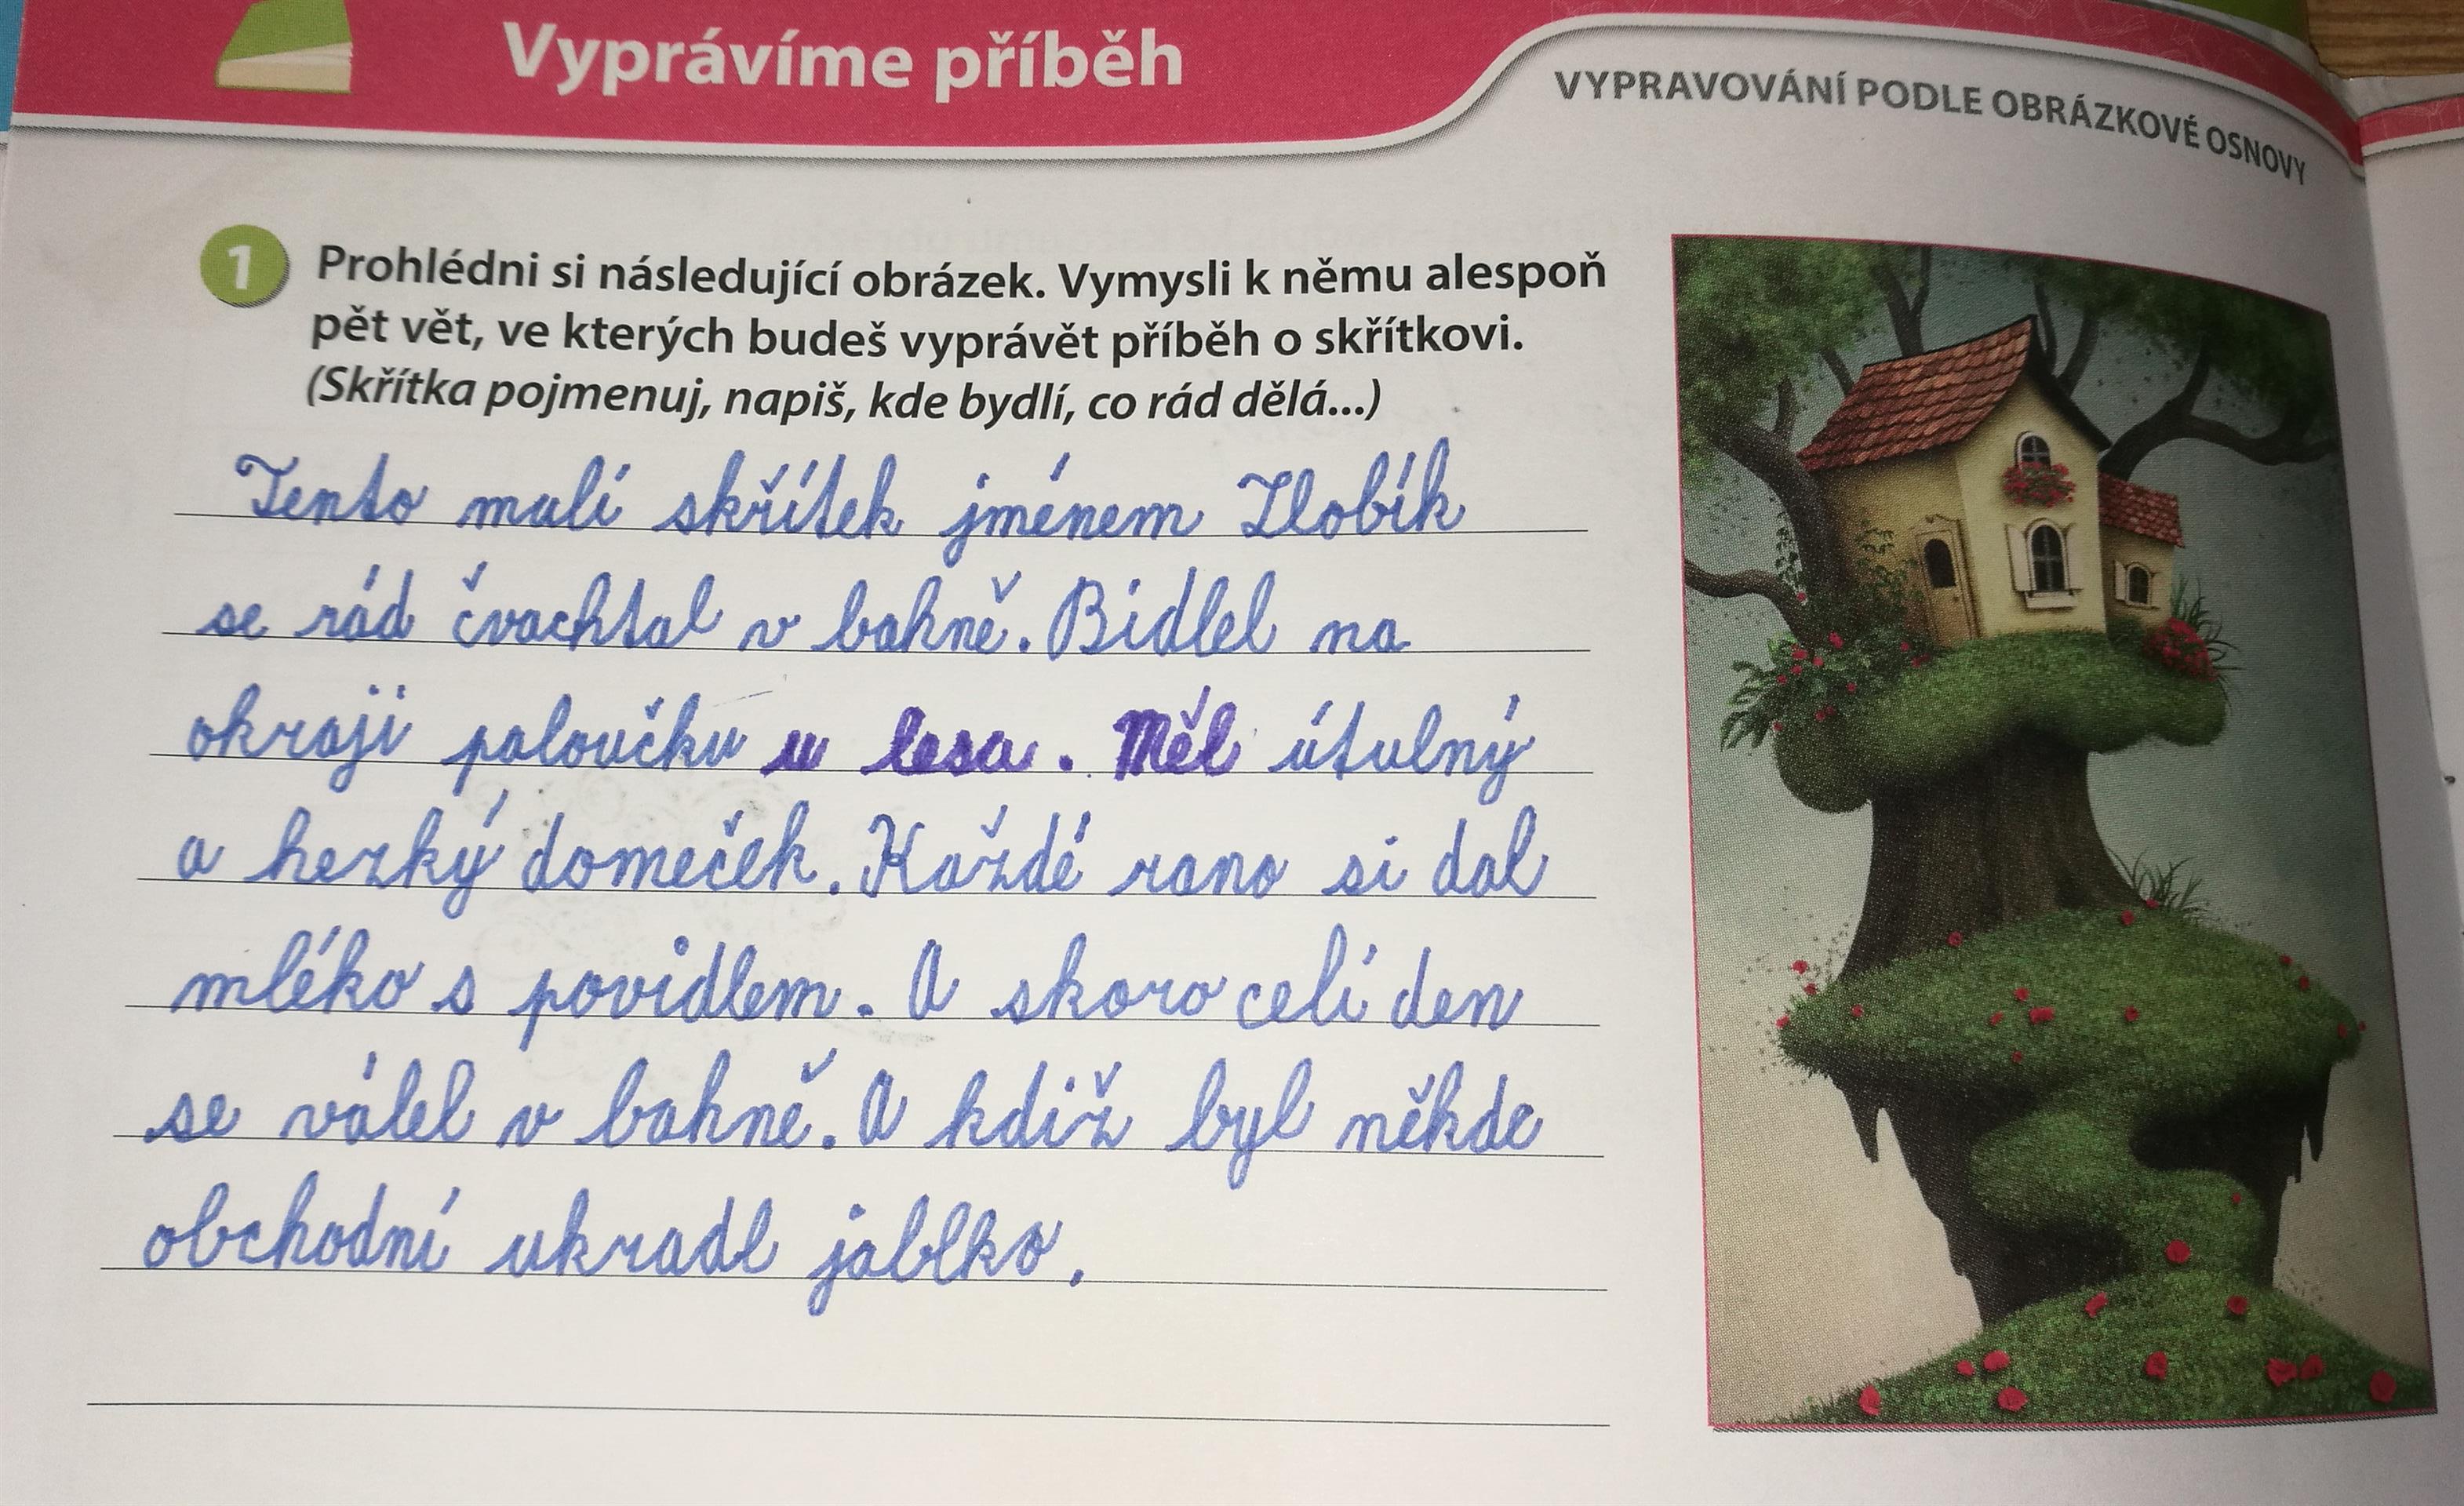 Vyprávíme příběh
VYPRAVOVÁNÍ PODLE OBRÁZKOVÉ OSNOVY
1 Prohlédni si následující obrázek. Vymysli k němu alespoň
pět vět, ve kterých budeš vyprávět příběh o skřítkovi.
(Skřítka pojmenuj, napiš, kde bydlí, co rád dělá...)
Tento malí skřítek jménem Zlobík
se rád čvachtal v bahně. Bidlel na
okraji paloučku u lesa. Měl útulný
a hezký domeček. Každé rano si dal
mléko s povidlem. A skoro celí den
se válel v bahně. A kdiž byl někde
obchodní ukradl jablko.